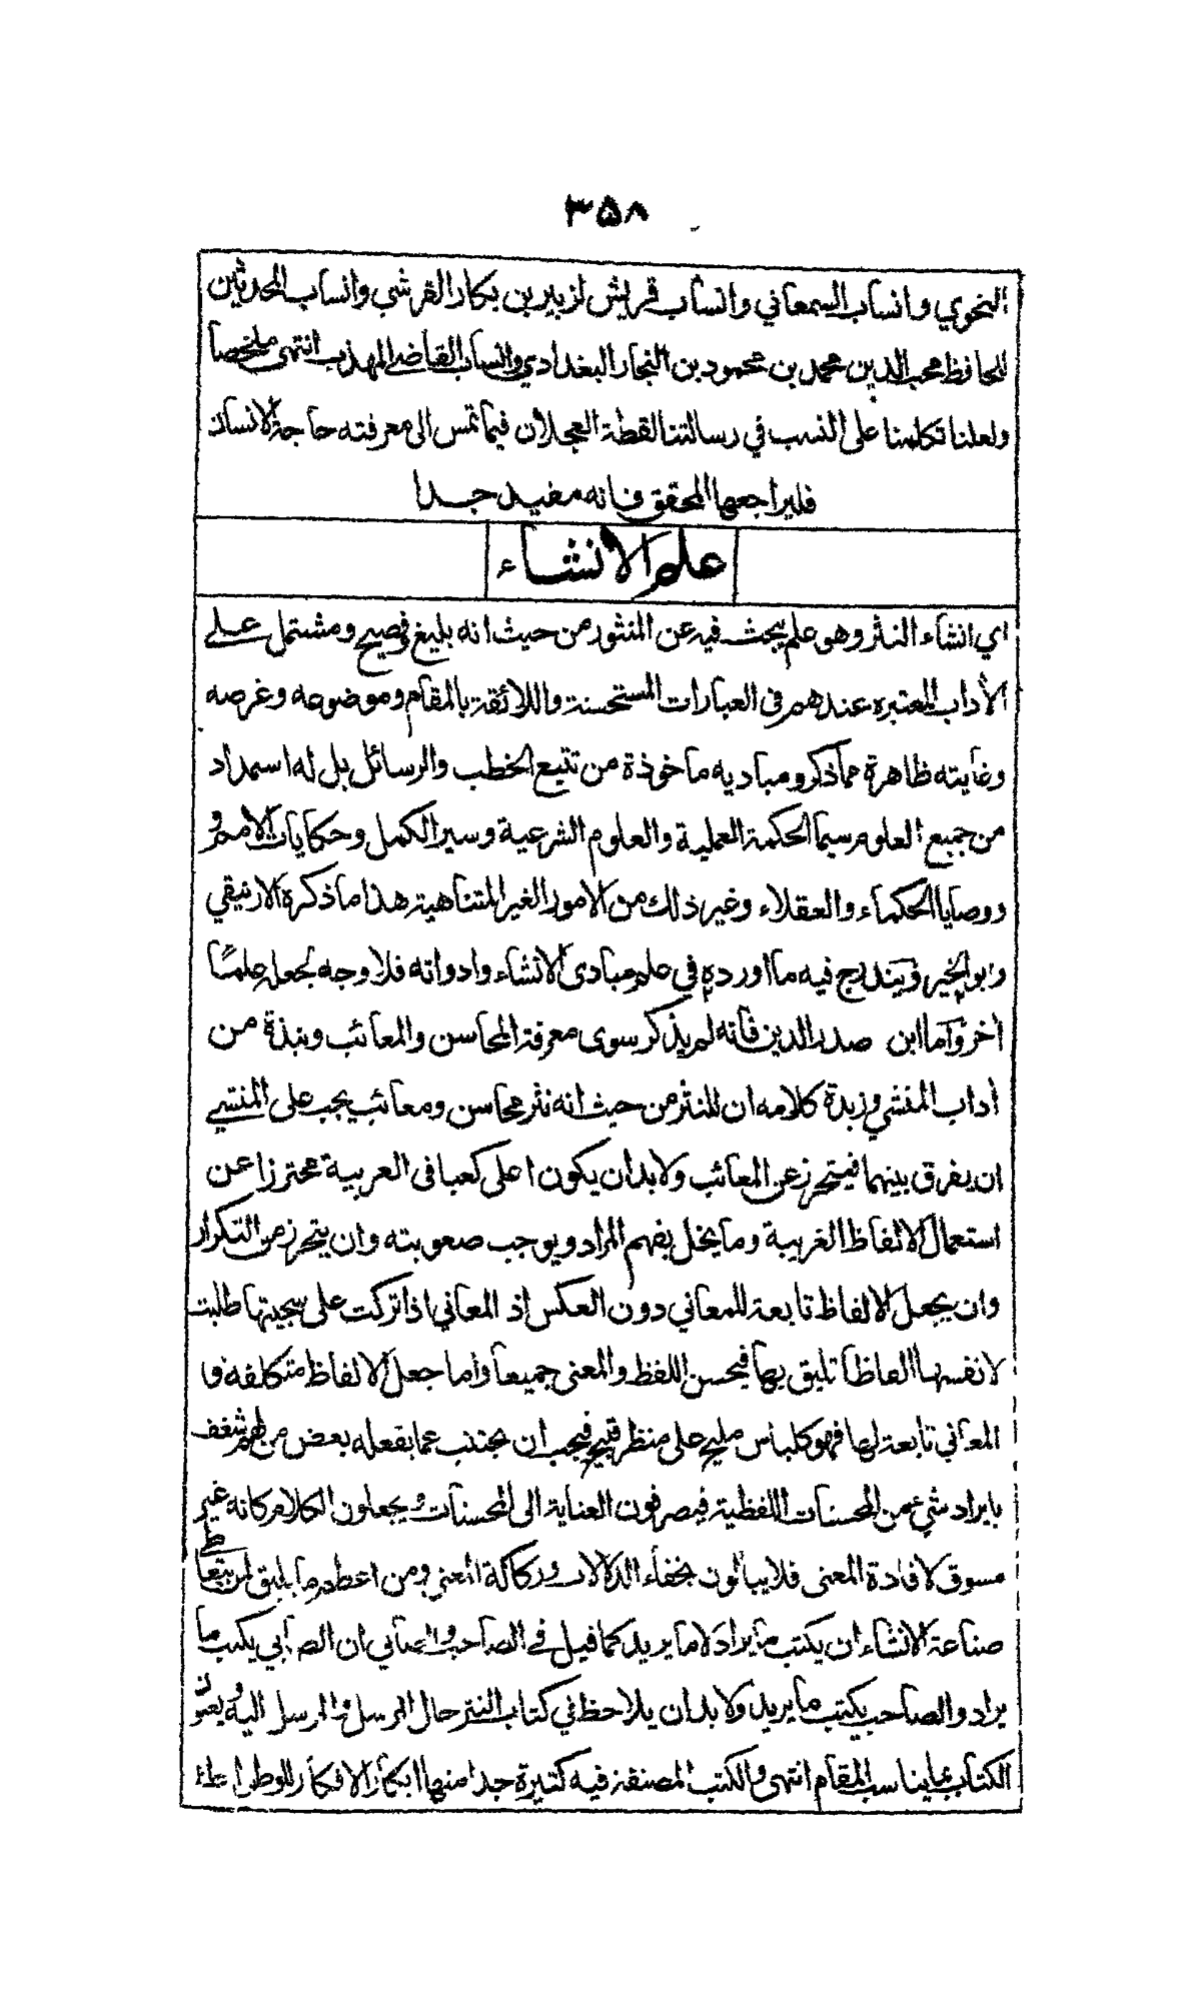 ٣٥٨
النحوي وانساب السمعاني وانساب قريش لزبير بن بكار القرشي وانساب المحدثين
للحافظ محب الدين محمد بن محمود بن النجار البغدادي وانساب القاضي المهذب انتهى ملخصا
ولعلنا تكلمنا على النسب في رسالتنا لقطة العجلان فيما تمس الى معرفته حاجة الانسان
فليراجعها المحقق فانه مفيد جدا
علم الانشاء
اي انشاء النثر وهو علم يبحث فيه عن المنثور من حيث انه بليغ وفصيح ومشتمل على
الأداب المعتبره عندهم في العبارات المستحسنة واللائقة بالمقام وموضوعه وغرضه
وغايته ظاهرة مما ذكر ومباديه ماخوذة من تتبع الخطب والرسائل بل له استمداد
من جميع العلوم سيما الحكمة العملية والعلوم الشرعية وسير الكمل وحكايات الامم و
ووصايا الحكماء والعقلاء وغير ذلك من الامور الغير المتناهية هذا ما ذكره الارنيقي
وابو الخير ويندرج فيه ما اورده في علم مبادى الانشاء وادواته فلا وجه لجعله علمًا
اخر وآما ابن صدر الدين فانه لم يذكر سوى معرفة المحاسن والمعائب ونبذة من
أداب المنشي وزبدة كلامه ان للنثر من حيث انه نثر محاسن ومعائب يجب على المنشي
ان يفرق بينهما فيتحرز عن المعائب ولا بد ان يكون اعلى كعبا فى العربية محترزا عن
استعمال الالفاظ الغريبة وما يخل بفهم المراد ويوجب صعوبته وان يتحرز من التكرار
وان يجعل الالفاظ تابعة للمعاني دون العكس اذ المعاني اذا تركت على سجيتها طلبت
لانفسها الفاظا تليق بها فيحسن اللفظ والمعنى جميعا وأما جعل الالفاظ متكلفه و
المعاني تابعة لها فهو كلباس مليح على منظر قبيح فيجب ان يجتنب عما يفعله بعض من لهم شغف
بايراد شيء من المحسنات اللفظية فيصرفون العناية الى المحسنات ويجعلون الكلام كانه غير
مسوق لافادة المعنى فلا يبالون بخفاء الدلالات وركاكة المعنى ومن اعظم ما يليق لمن يتعاطى
صناعة الانشاء ان يكتب ما يراد لا ما يريد كما قيل في الصاحب والصابي ان الصابي يكتب ما
يراد والصاحب يكتب ما يريد ولا بد ان يلاحظ في كتاب النثر حال المرسل والمرسل اليه ويعنون
الكتاب بما يناسب المقام انتهى والكتب المصنفة فيه كثيرة جدا منها ابكار الافكار للوطواط